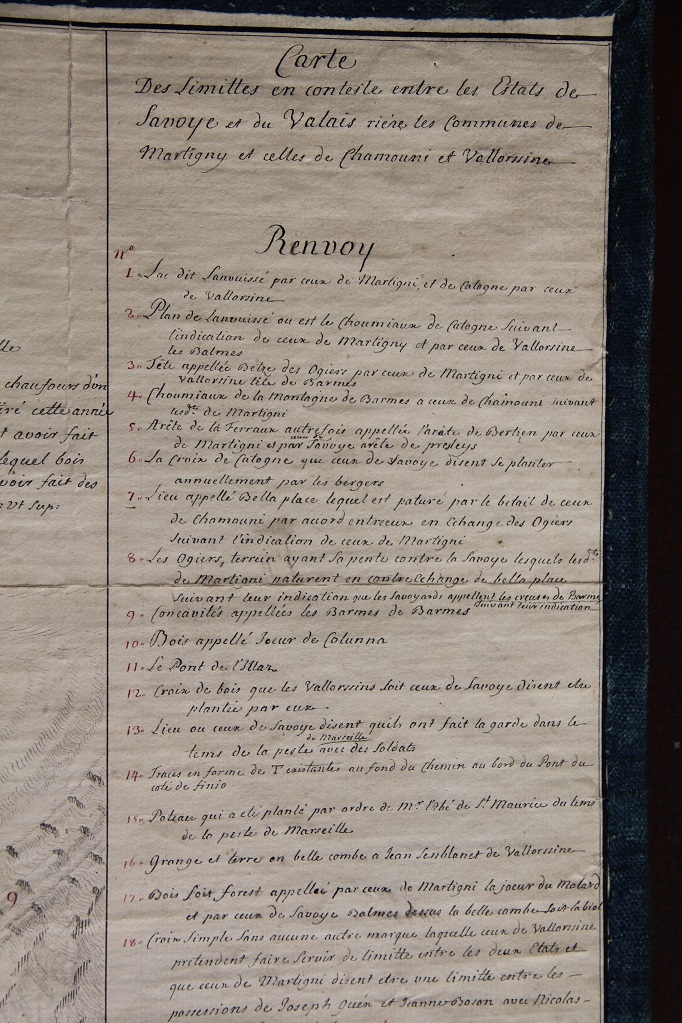 Carte
Des Limittes en conteste entre les Estats de
Savoye et du Valais riére les Communes de
Martigny et celles de Chamouni et Vallorssine
Renvoy
n°
1. Lac dit Lanvuissé par ceux de Martigni, et de Catogne par ceux
de Vallorsine
2. Plan de Lanvuissé ou est le Choumiaux de Catogne Suivant
l'indication de ceux de Martigny et par ceux de Vallorsine
les Balmes
3. Tête appellée Betze des Ogiers par ceux de Martigni et par ceux de
Vallorsine tête de Barmes
4. Choumiaux de la Montagne de Barmes a ceux de Chamouni suivant
lesdts de Martigni
5. Arête de la Ferraux autrefois appellée l'arête de Bertien par ceux
de Martigni et par ceux de Savoye arête de presleys
6. La Croix de Catogne que ceux de Savoye disent se planter
annuellement par les bergers
7. Lieu appellé Bella place lequel est paturé par le betail de ceux
de Chamouni par acord entreeux en Echange des Ogiers
Suivant l'indication de ceux de Martigni
8. Les Ogiers, terrein ayant sa pente contre la Savoye lesquels lesdts
de Martigni paturent en contre Echange de bella place
suivant leur indication que les Savoyards appellent les creuses de Barme
9. Concavités appellées les Barmes de Barmes suivant leur indication
10. Bois appellé Joeur de Colunna
11. Le Pont de l'Illaz
12. Croix de bois que les Vallorssins soit ceux de Savoye disent etre
plantée par eux
13. Lieu ou ceux de Savoye disent quils ont fait la garde dans le
tems de la peste de Marseille avec des Soldats
14. Traces en forme de T existantes au fond du Chemin au bord du Pont du
coté de finio
15. Poteau qui a eté planté par ordre de Mr l'Abé de St Maurice du tems
de la peste de Marseille
16. Grange et terre en belle combe a Jean Senblanet de Vallorssine
17. Bois Soit forest appellée par ceux de Martigni la joeur du Molard
et par ceux de Savoye Balmes dessus la belle combe soit la biol
18. Croix Simple Sans aucune autre marque laquelle ceux de Vallorssine
pretendent faire Servir de limitte entre les deux Etats et
que ceux de Martigni disent etre une limitte entre les
possessions de Joseph Guéx et Jeanne Boson avec Nicolas
lle
chaufours d'un
iré cette année
t avoir fait
lequel bois
voir fait des
: Vt Sup:
9